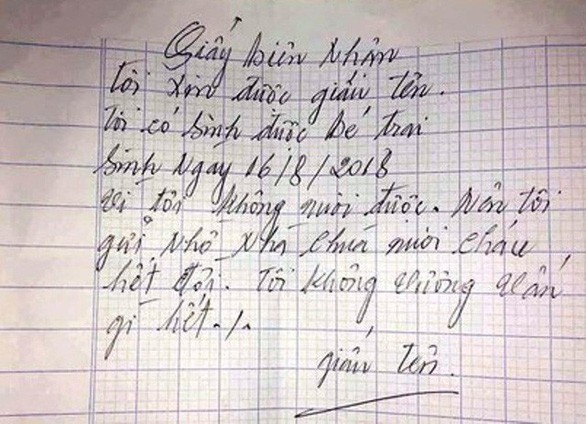 Giấy biên nhận
Tôi xin được giấu tên.
Tôi có sinh được bé trai
sinh ngày 16/8/2018
vì tôi không nuôi được. Nên tôi
gửi nhờ nhà chùa nuôi cháu
hết đời. Tôi không vương vấn
gì hết./.
giấu tên.